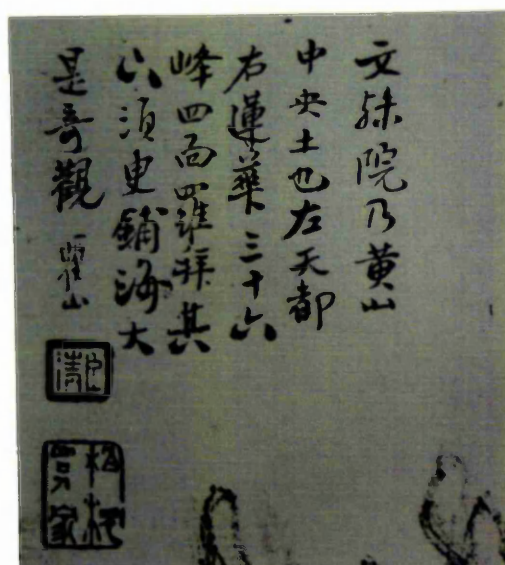 文殊院乃黄山
中央土也左天都
右蓮華三十六
峰四面羅拜其
下須臾鋪海大
是奇觀 瞿山
臣清